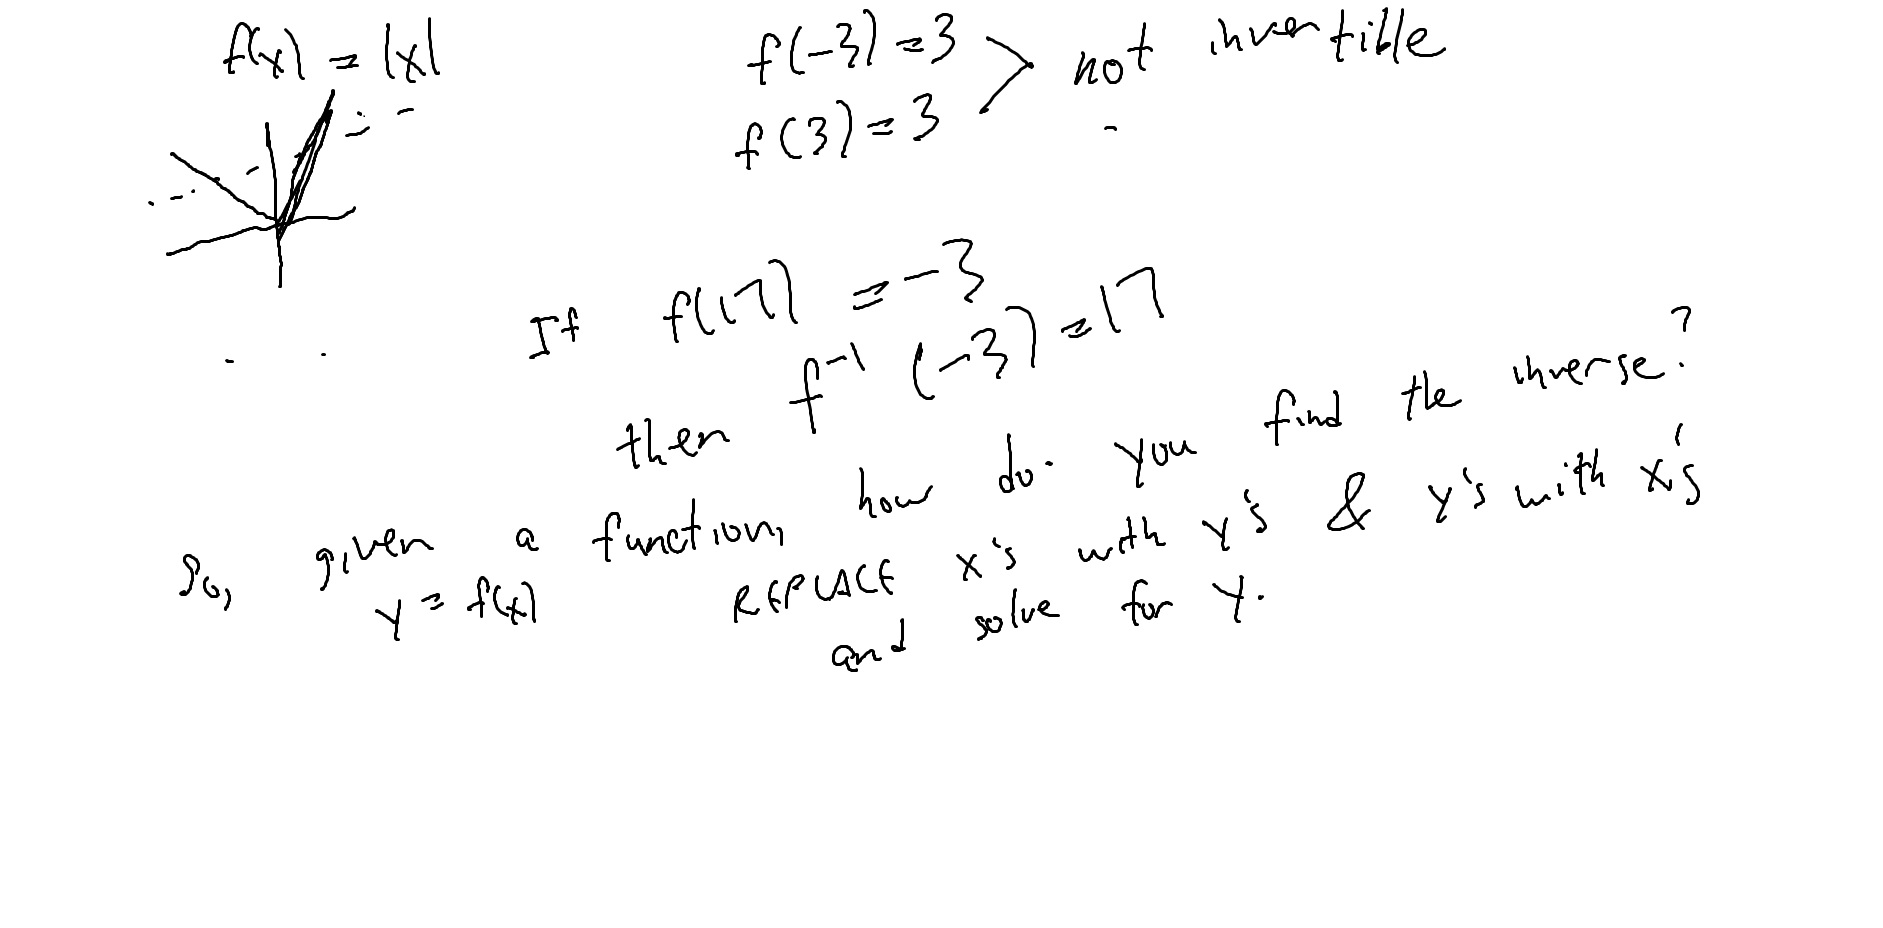 f(x) = |x|
f(-3) = 3
f(3) = 3
> not invertible
If f(17) = -3
then f⁻¹ (-3) = 17
So, given a function, how do you find the inverse?
y = f(x)
REPLACE x's with y's & y's with x's
and solve for y.